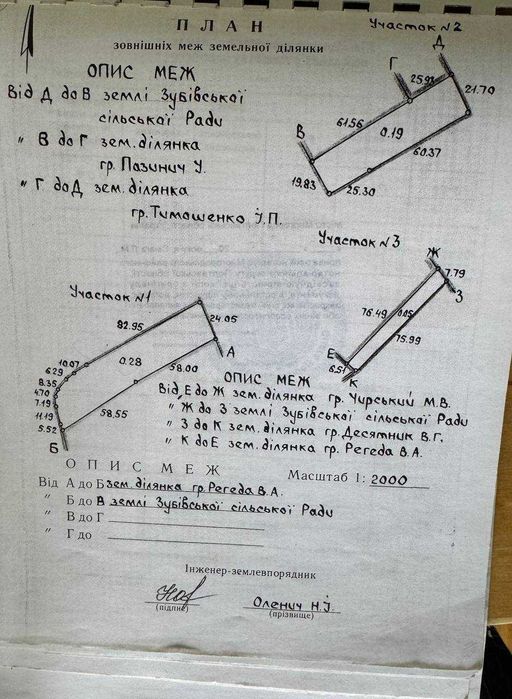 ПЛАН
Участок №2
зовнішніх меж земельної ділянки
ОПИС МЕЖ
Від Д до В землі Зубівської
сільської Ради
" В до Г зем. ділянка
гр. Пазинич У.
" Г до Д зем. ділянка
гр. Тимошенко І.П.
Д
Г
25.93
21.70
61.56
0.19
В
60.37
19.83
25.30
Участок №3
Ж
7.79
З
76.49
0.05
75.99
Е
6.51
К
Участок №1
82.95
24.05
А
10.07
0.28
58.00
6.29
8.35
4.70
7.19
11.19
58.55
5.52
Б
ОПИС МЕЖ
Від Е до Ж зем. ділянка гр. Чирський М.В.
" Ж до З землі Зубівської сільської Ради
" З до К зем. ділянка гр. Десятник В.Г.
" К до Е зем. ділянка гр. Регеда В.А.
ОПИС МЕЖ
Масштаб 1: 2000
Від А до Б зем. ділянка гр. Регеда В.А.
" Б до В землі Зубівської сільської Ради
" В до Г
" Г до
Інженер-землевпорядник
(підпис)
Оленич Н.І.
(прізвище)